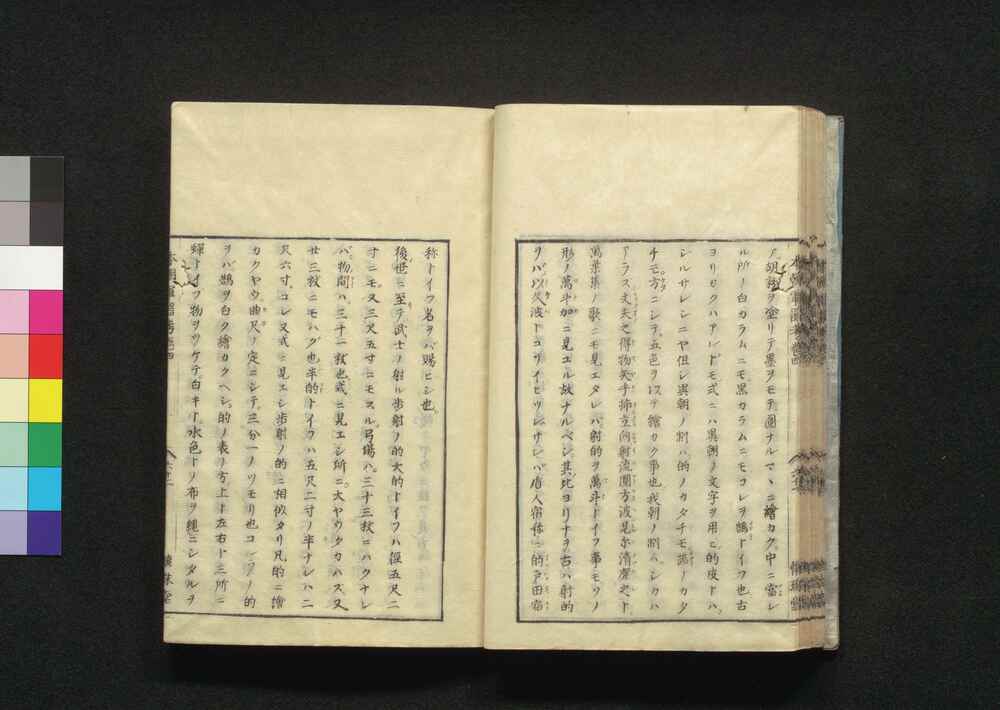 ノ胡粉ヲ塗リテ墨ヲモテ圓ナルマヽニ繪カク中ニ當レ
ル所ノ白カラムニモ黒カラムニモコレヲ鵠トイフ也古
ヨリカクハアルドモ式ニハ異朝ノ文字ヲ用モ的皮トハ
シルサレシニヤ但シ異朝ノ別ハ的ノカタチモ ノカタ
チモ方ニシテ五色ヲ以テ繪カク事也我朝ノ制ハシカハ
アラス丈夫之得物矢手挿立向射流圓方波見尓清 之ト
萬葉集ノ歌ニモ見エタレバ射的ヲ萬斗トイフ事モソノ
形ノ萬斗加ニ見エル故ナルベシ其比ヨリナヲ古ハ射的
ヲバ以久波トコソイヒツレサレバ 人宿祢 的戸田宿
称トイフ名ヲバ賜ヒシ也
後世ニ至テ武士ノ射ル歩射ノ的大的トイフハ徑五尺二
寸ニモ又三尺五寸ニモスル弓場ハ三十三杖ニハクナレ
バ物間ハ三十一杖也式ニ見エシ所ニ大ヤウタカハズ又
廿三杖ニモハグ也半的トイフハ五尺二寸ノ半ナレハ二
尺六寸コレ又式ニ見エシ歩射ノ的ニ相似タリ凡的ニ繪
カクヤウ曲尺ノ定ニシテ三分一ノツモリ也コレラノ的
ヲバ鵠ヲ白ク繪カクヘシ的ノ表ノ方上ト左右ト三所ニ
蟬トイフ物ヲツケテ白キト水色トノ布ヲ縄ニシタルヲ